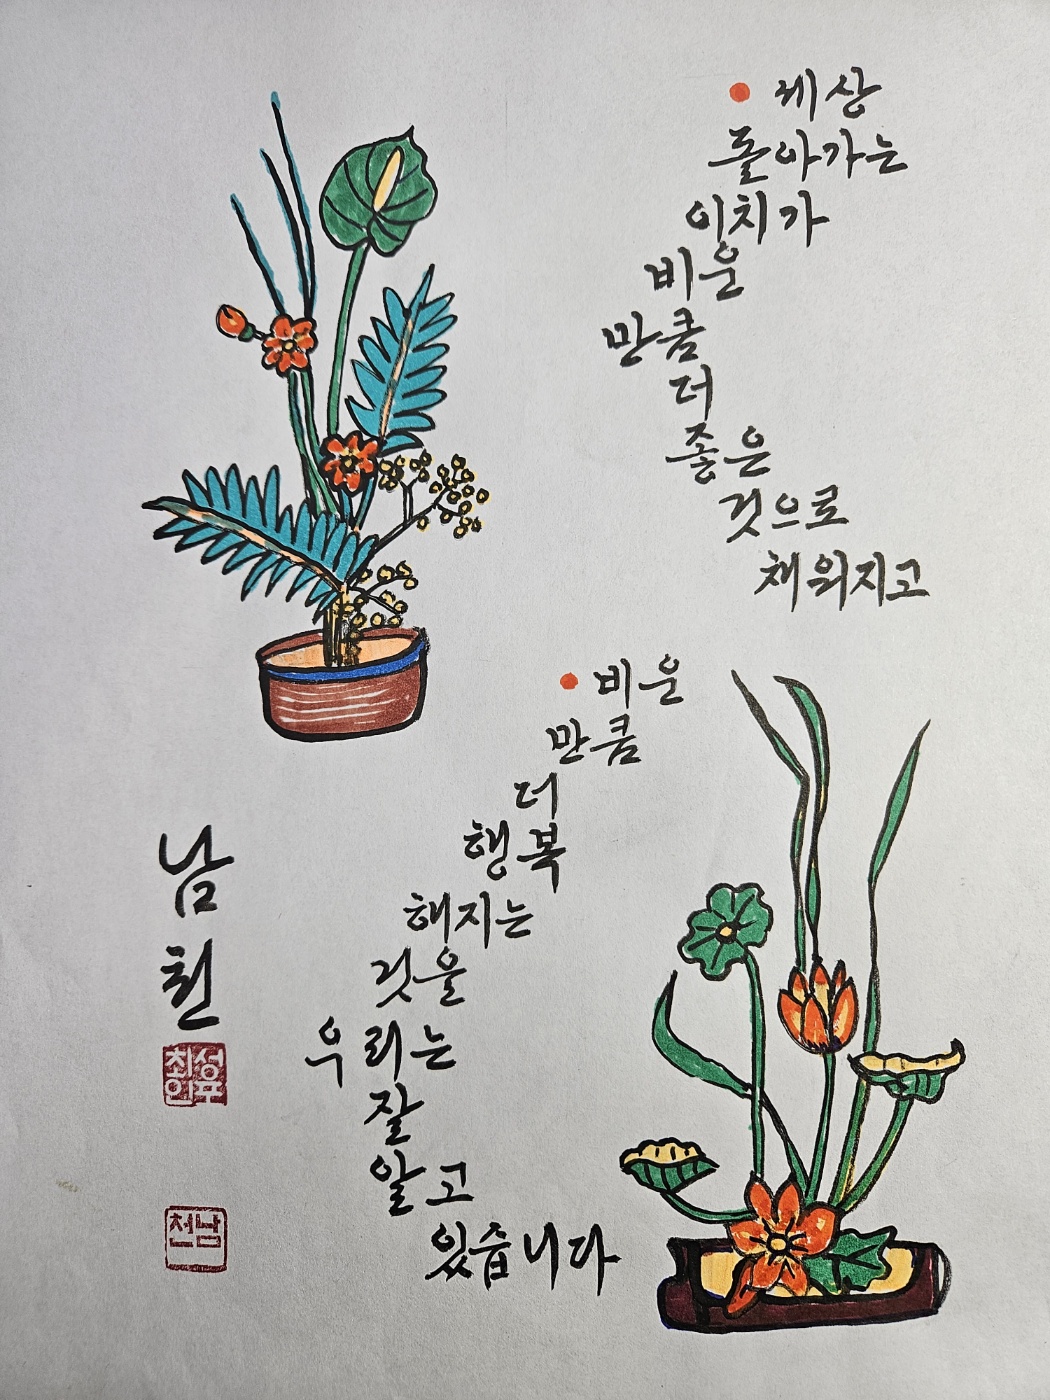 세상
돌아가는
이치가
비운
만큼
더
좋은
것으로
채워지고
비운
만큼
더
행복
해지는
것을
우리는
잘
알고
있습니다
남
천
남천